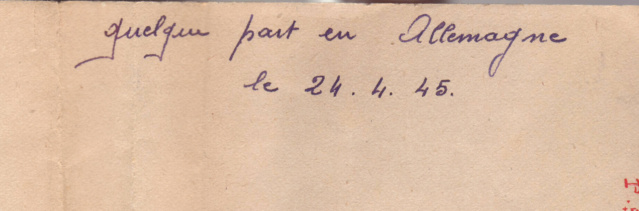 quelque part en Allemagne
le 24. 4. 45.